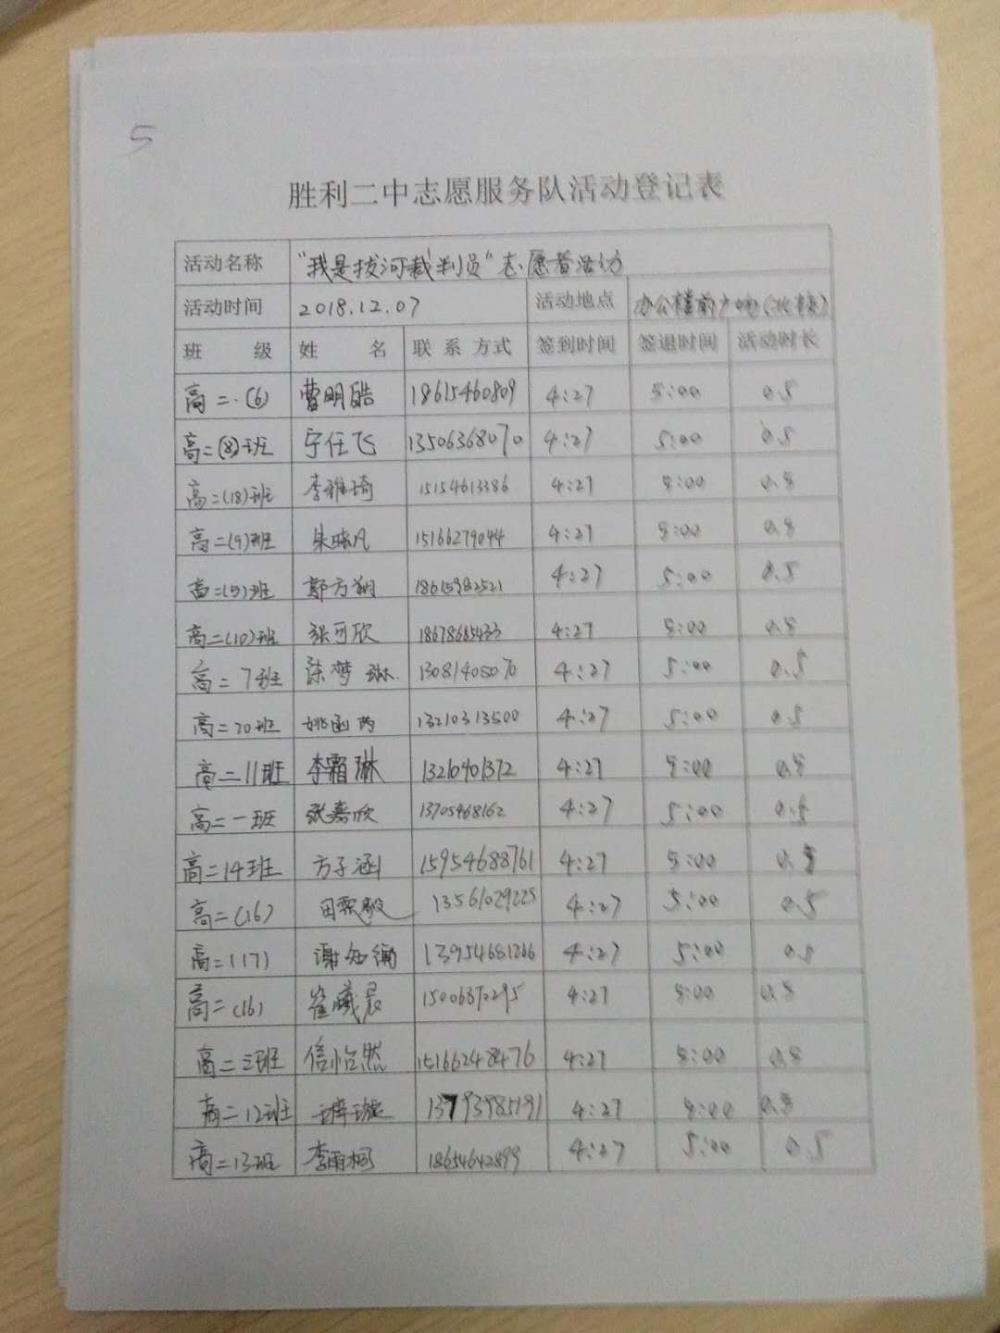 5
胜利二中志愿服务队活动登记表
活动名称 "我是拔河裁判员"志愿者活动
活动时间 2018.12.07 活动地点 办公楼前
班 级 姓 名 联系方式 签到时间 签退时间 活动时长
高二.(6) 曹明皓 18615460809 4:27 5:00 0.5
高二(8)班 宁任飞 13506368070 4:27 5:00 0.5
高二(18)班 李雅琦 15154613386 4:27 5:00 0.5
高二(9)班 朱 凡 15166279044 4:27 5:00 0.5
高二(5)班 郭方翔 18615982521 4:27 5:00 0.5
高二(10)班 张可欣 18678685433 4:27 5:00 0.5
高二7班 陈梦琳 13081405070 4:27 5:00 0.5
高二20班 姚函芮 13210313500 4:27 5:00 0.5
高二11班 李霜琳 13210901372 4:27 5:00 0.5
高二一班 张嘉欣 13705468162 4:27 5:00 0.5
高二14班 方子涵 15954688761 4:27 5:00 0.5
高二(16) 田 毅 13561029225 4:27 5:00 0.5
高二(17) 谢 13954681266 4:27 5:00 0.5
高二(16) 崔曦晨 15006870295 4:27 5:00 0.5
高二三班 信怡然 15166248476 4:27 5:00 0.5
高二12班 4:27 5:00 0.5
高二13班 李雨柯 18654642899 4:27 5:00 0.5